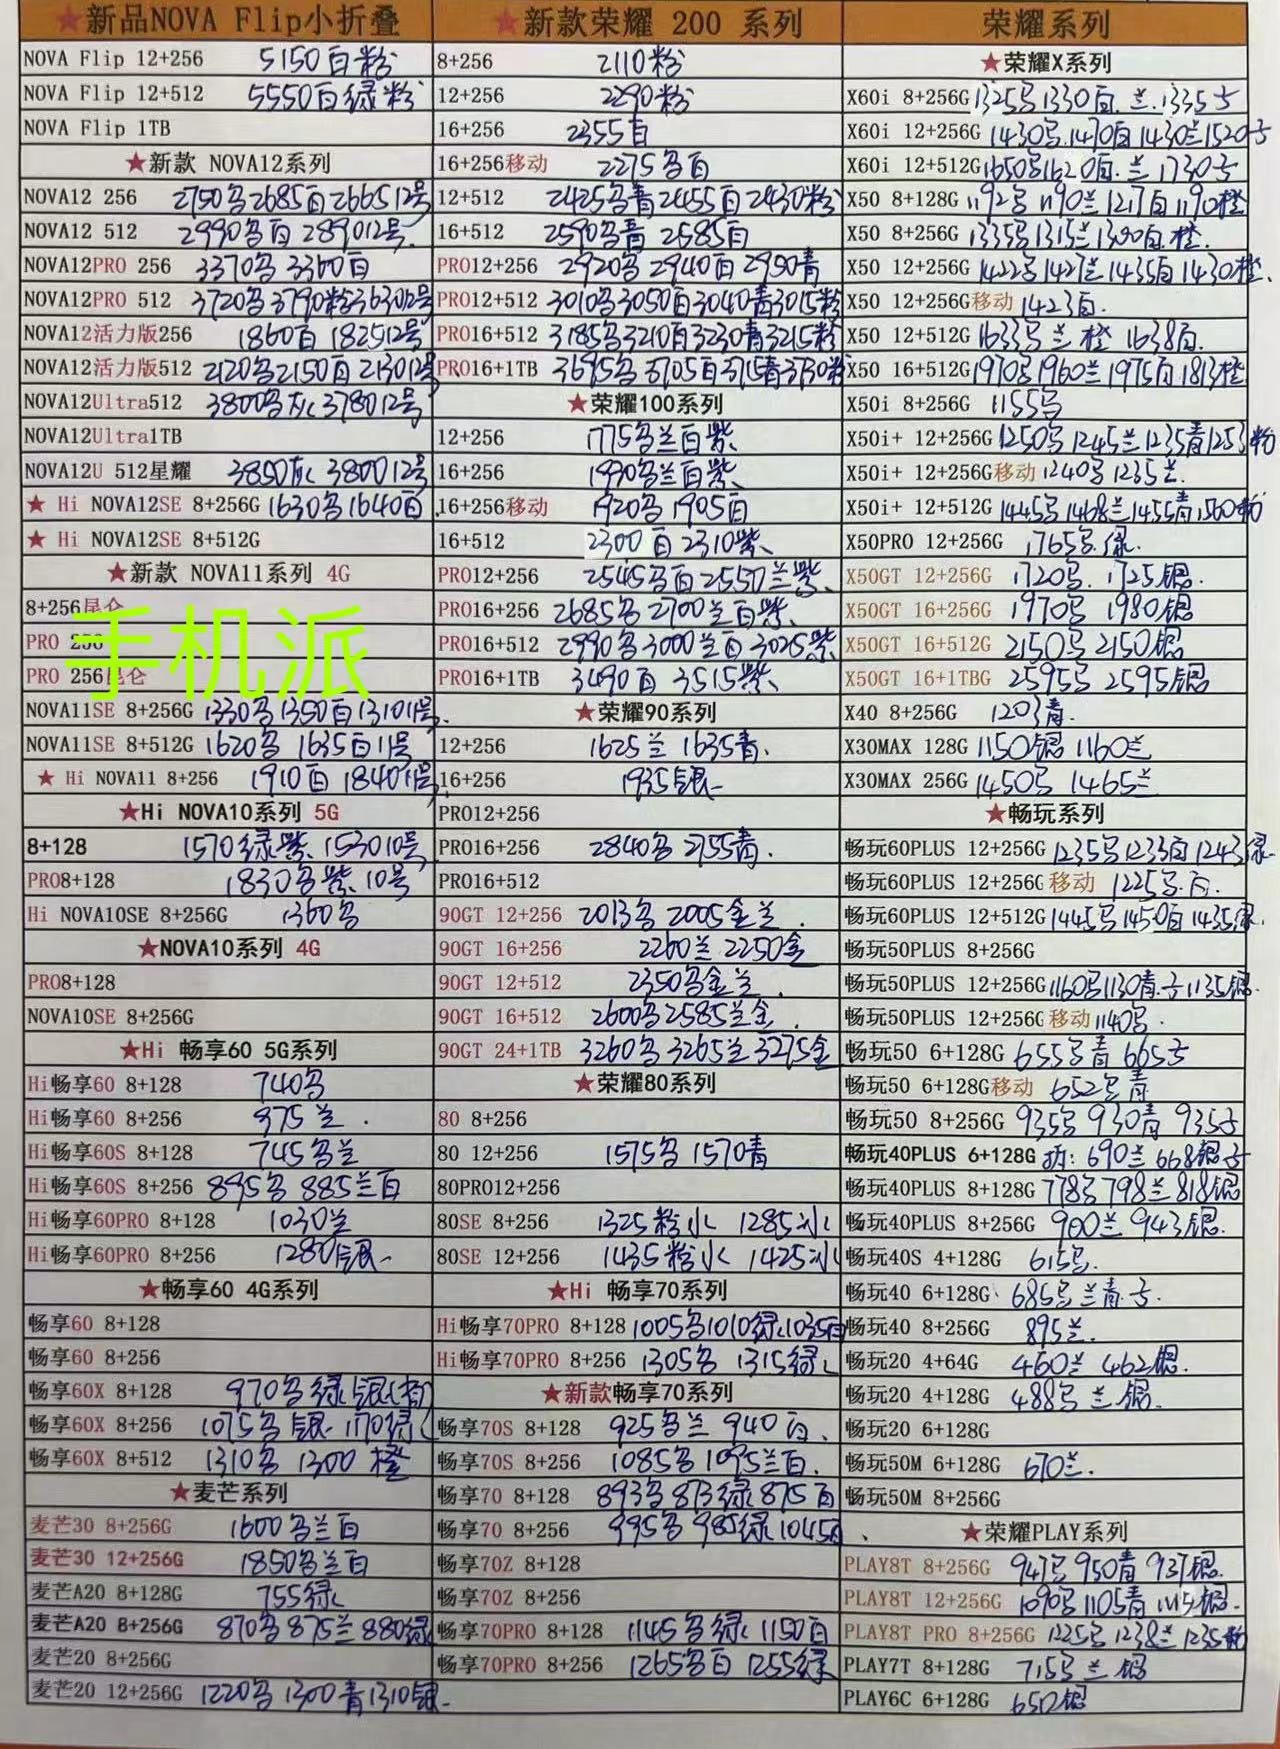 ★新品NOVA Flip小折叠
NOVA Flip 12+256 5150白粉
NOVA Flip 12+512 5550白绿粉
NOVA Flip 1TB
★新款 NOVA12系列
NOVA12 256 2750多2685白266512号
NOVA12 512 2990多白289012号
NOVA12PRO 256 3370多 3360白
NOVA12PRO 512 3720多3790粉363012号
NOVA12活力版256 1860白 182512号
NOVA12活力版512 2120多2150白213012号
NOVA12Ultra512 3800多灰378012号
NOVA12Ultra1TB
NOVA12U 512星耀 3850灰 380012号
★ Hi NOVA12SE 8+256G 1630多1640白
★ Hi NOVA12SE 8+512G
★新款 NOVA11系列 4G
8+256昆仑
PRO 256
PRO 256昆仑
手机派
NOVA11SE 8+256G 1330多1350白131011号
NOVA11SE 8+512G 1620多 1635白11号
★ Hi NOVA11 8+256 1910白 184011号
★Hi NOVA10系列 5G
8+128 1570绿紫 153010号
PRO8+128 1830多紫10号
Hi NOVA10SE 8+256G 1360多
★NOVA10系列 4G
PRO8+128
NOVA10SE 8+256G
★Hi 畅享60 5G系列
Hi畅享60 8+128 740多
Hi畅享60 8+256 975兰
Hi畅享60S 8+128 745多兰
Hi畅享60S 8+256 895多 885兰白
Hi畅享60PRO 8+128 1030兰
Hi畅享60PRO 8+256 1280银
★畅享60 4G系列
畅享60 8+128
畅享60 8+256
畅享60X 8+128 970多绿银
畅享60X 8+256 1075多银 1170绿
畅享60X 8+512 1310多 1300 橙
★麦芒系列
麦芒30 8+256G 1600多兰白
麦芒30 12+256G 1850多兰白
麦芒A20 8+128G 755绿
麦芒A20 8+256G 870多875兰880绿
麦芒20 8+256G
麦芒20 12+256G 1220多1300青1310银
★新款荣耀 200 系列
8+256 2110粉
12+256 2290粉
16+256 2355白
16+256移动 2275多白
12+512 2425多青2455白2430粉
16+512 2590多青2585白
PRO12+256 2920多 2940白 2950青
PRO12+512 3010多3050白3040青3015粉
PRO16+512 3185多3210白3230青3215粉
PRO16+1TB 3695多 3705白3715青3730粉
★荣耀100系列
12+256 1775多兰白紫
16+256 1990多兰白紫
16+256移动 1920多 1905白
16+512 2300 白 2310紫
PRO12+256 2545多白2550兰紫
PRO16+256 2685多2700兰白紫
PRO16+512 2990多3000兰白3025紫
PRO16+1TB 3490白 3515紫
★荣耀90系列
12+256 1625兰 1635青
16+256 1935银
PRO12+256
PRO16+256 2840多 2755青
PRO16+512
90GT 12+256 2013多 2005金兰
90GT 16+256 2260兰 2250金
90GT 12+512 2350多金兰
90GT 16+512 2600多2585兰金
90GT 24+1TB 3260多3265兰3275金
★荣耀80系列
80 8+256
80 12+256 1575多 1570青
80PRO12+256
80SE 8+256 1325粉 1285冰
80SE 12+256 1435粉 1425冰
★Hi 畅享70系列
Hi畅享70PRO 8+128 1005多1010绿1035白
Hi畅享70PRO 8+256 1305多 1315绿
★新款畅享70系列
畅享70S 8+128 925多兰 940白
畅享70S 8+256 1085多1095兰白
畅享70 8+128 893多873绿875白
畅享70 8+256 995多985绿1045白
畅享70Z 8+128
畅享70Z 8+256
畅享70PRO 8+128 1145多绿 1150白
畅享70PRO 8+256 1265多白 1255绿
荣耀系列
★荣耀X系列
X60i 8+256G 1325多1330白.兰.1335
X60i 12+256G 1430多.1470白1430兰1520
X60i 12+512G 1650多1620白.兰 1730
X50 8+128G 1192多 1190兰 1217白1190橙
X50 8+256G 1335多1315兰1300白橙
X50 12+256G 1422多1427兰1435白1430橙
X50 12+256G移动 1423白
X50 12+512G 1633多兰橙 1638白
X50 16+512G 1970多1960兰1975白1813橙
X50i 8+256G 1155多
X50i+ 12+256G 1250多1245兰1235青1253粉
X50i+ 12+256G移动 1240多1235兰
X50i+ 12+512G 1445多1468兰1455青1560粉
X50PRO 12+256G 1765多绿
X50GT 12+256G 1720多.1725银
X50GT 16+256G 1970多 1980银
X50GT 16+512G 2150多2150银
X50GT 16+1TBG 2595多 2595银
X40 8+256G 1203青
X30MAX 128G 1150银 1160兰
X30MAX 256G 1450多 1465兰
★畅玩系列
畅玩60PLUS 12+256G 1235多1233白1243绿
畅玩60PLUS 12+256G 移动 1225多.白
畅玩60PLUS 12+512G 1445多1450白1435绿
畅玩50PLUS 8+256G
畅玩50PLUS 12+256G 1160多1130青1135银
畅玩50PLUS 12+256G 移动 1140多
畅玩50 6+128G 655多青 665
畅玩50 6+128G移动 652多青
畅玩50 8+256G 935多 930青 935
畅玩40PLUS 6+128G 690兰 668银
畅玩40PLUS 8+128G 778多798兰818银
畅玩40PLUS 8+256G 900兰 943银
畅玩40S 4+128G 615多
畅玩40 6+128G 685多兰青
畅玩40 8+256G 895兰
畅玩20 4+64G 460兰 462银
畅玩20 4+128G 488多兰银
畅玩20 6+128G
畅玩50M 6+128G 670兰
畅玩50M 8+256G
★荣耀PLAY系列
PLAY8T 8+256G 947多950青 937银
PLAY8T 12+256G 1090多1105青 1115银
PLAY8T PRO 8+256G 1225多1238兰1235粉
PLAY7T 8+128G 715多兰银
PLAY6C 6+128G 650银